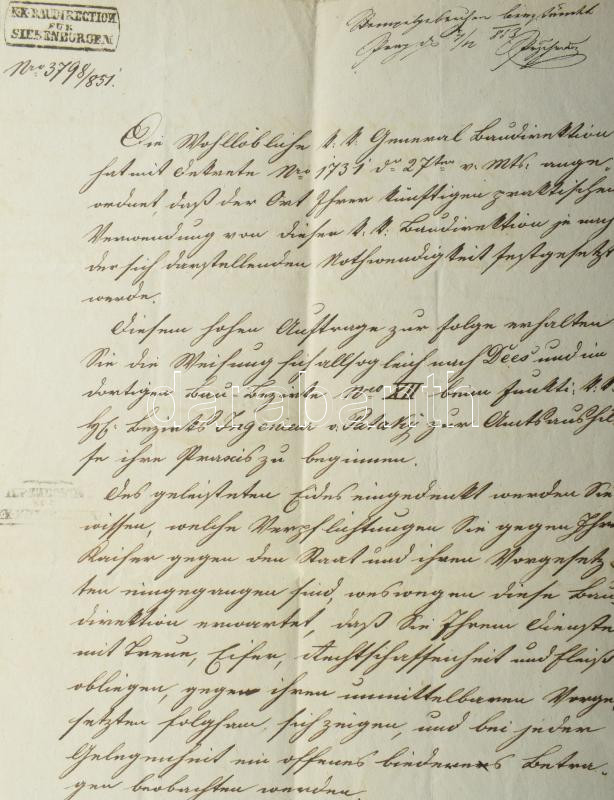 K.K. BAUDIRECTION
FÜR
SIEBENBÜRGEN
Nro 3798/851.
Die Wohllöbliche k. k. General Baudirektion
hat mit Dekrete Nro 1731 do 27ten v. Mts: ange-
ordnet, daß der Ort Ihrer künftigen praktischen
Verwendung von dieser k. k. Baudirektion je nach
der sich darstellenden Nothwendigkeit festgesetzt
werde.
Diesem hohen Auftrage zur Folge erhalten
Sie die Weisung sich allsogleich nach Dees und im
dortigen Bau Bezirke Nro XII beim funkti: k. k.
H: Bezirks Ingenieur v. Pataky zur Amtsaushil
fe ihre Praxis zu beginnen.
Des geleisteten Eides eingedenkt werden Sie
wissen, welche Verpflichtungen Sie gegen Ihren
Kaiser gegen den Staat und ihren Vorgesetz-
ten eingegangen sind, weswegen diese Bau
direktion erwartet, daß Sie Ihrem Dienste
mit Treue, Eifer, Rechtschaffenheit und Fleiß
obliegen, gegen ihren unmittelbaren Vorge
setzten folgsam sich zeigen, und bei jeder
Gelegenheit ein offenes biederes Betra-
gen beobachten werden.
darabanth